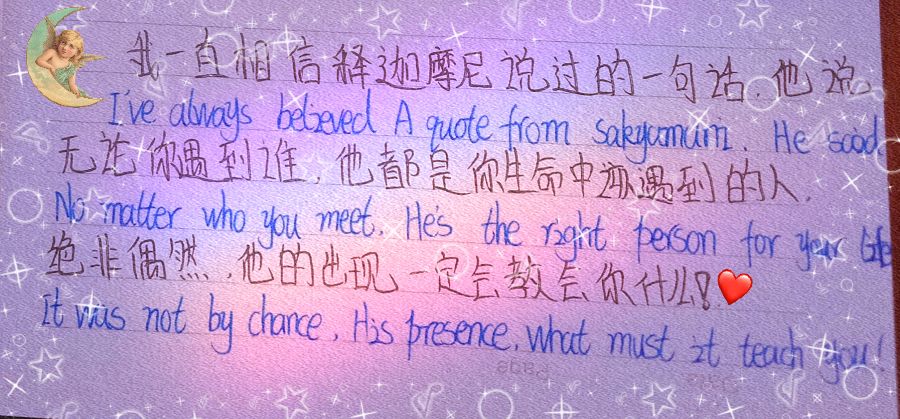 我一直相信释迦摩尼说过的一句话.他说
I've always believed A quote from sakyamuni. He said.
无论你遇到谁.他都是你生命中该遇到的人.
No matter who you meet. He's the right person for your life
绝非偶然.他的出现一定会教会你什么!❤️
It was not by chance. His presence. what must it teach you!